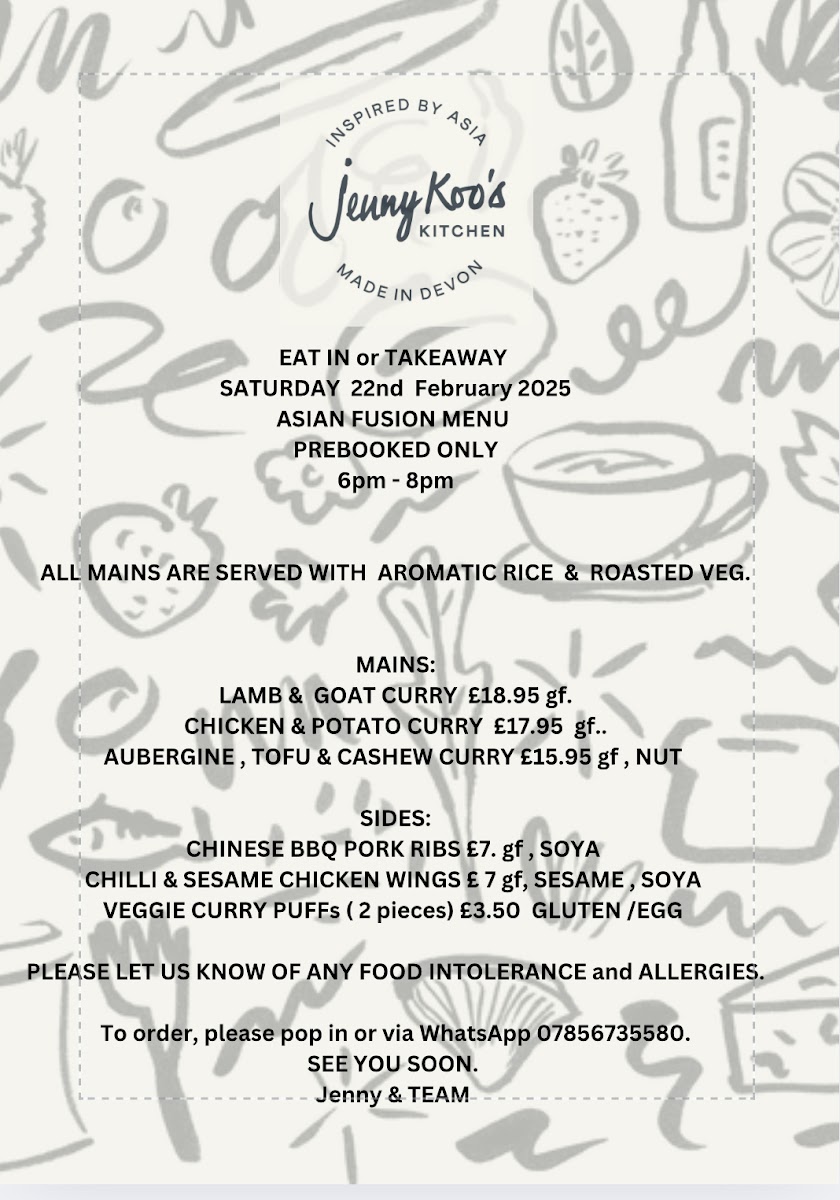 INSPIRED BY ASIA
Jenny Koo's
KITCHEN
MADE IN DEVON
EAT IN or TAKEAWAY
SATURDAY 22nd February 2025
ASIAN FUSION MENU
PREBOOKED ONLY
6pm - 8pm
ALL MAINS ARE SERVED WITH AROMATIC RICE & ROASTED VEG.
MAINS:
LAMB & GOAT CURRY £18.95 gf.
CHICKEN & POTATO CURRY £17.95 gf..
AUBERGINE , TOFU & CASHEW CURRY £15.95 gf , NUT
SIDES:
CHINESE BBQ PORK RIBS £7. gf , SOYA
CHILLI & SESAME CHICKEN WINGS £ 7 gf, SESAME , SOYA
VEGGIE CURRY PUFFs ( 2 pieces) £3.50 GLUTEN /EGG
PLEASE LET US KNOW OF ANY FOOD INTOLERANCE and ALLERGIES.
To order, please pop in or via WhatsApp 07856735580.
SEE YOU SOON.
Jenny & TEAM